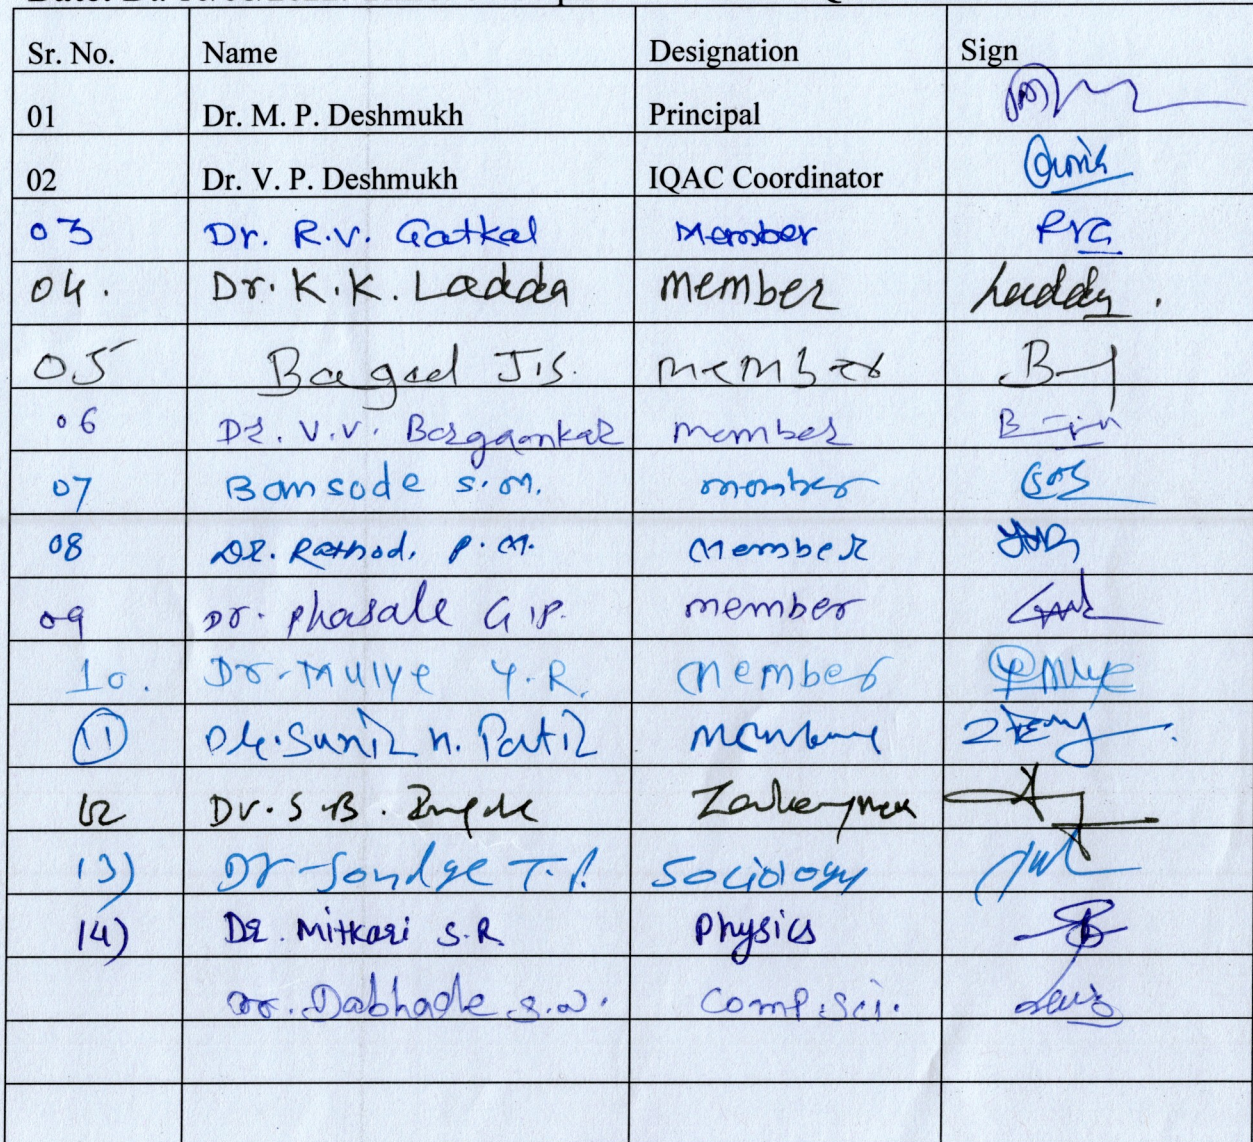 Sr. No. Name Designation Sign
01 Dr. M. P. Deshmukh Principal
02 Dr. V. P. Deshmukh IQAC Coordinator
03 Dr. R.V. Gatkal Member RVG
04. Dr. K.K. Ladda member Ladda.
05 Bagad J.S. member
06 Dr. V.V. Borgaonkar member
07 Bansode S.M. member
08 Dr. Rathod. P.M. Member
09 Dr. Phasale G.P. member
10. Dr. Mulye Y.R. Member YMulye
11 Dr. Sunil N. Patil member
12 Dr. S.B.
13) Dr. Sondge T.P. Sociology
14) Dr. Mitkari S.R Physics
Dr. Dabhade S.W. Comp.Sci.